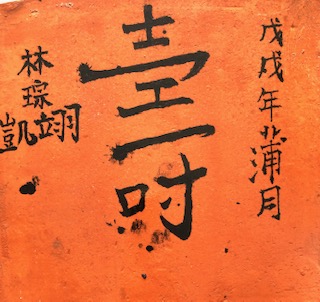 戊戌年蒲月
壽
林琮翊
凱